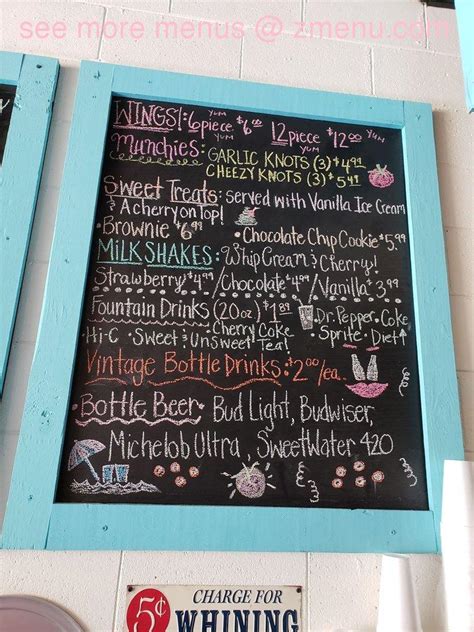 see more menus @ zmenu.com
WINGS!: 6piece $6.00 12piece $12.00 YUM
YUM YUM
Munchies: GARLIC KNOTS (3) $4.99
CHEEZY KNOTS (3) $5.49
Sweet Treats: served with Vanilla Ice Cream
& A cherry on Top!
•Brownie $6.99 •Chocolate Chip Cookie $5.99
MILKSHAKES: Whip Cream & Cherry!
Strawberry $4.99/Chocolate $4.99/Vanilla $3.99
Fountain Drinks (20oz) $1.89 •Dr. Pepper •Coke
•Hi-C •Sweet & Unsweet Tea! Cherry Coke •Sprite •Diet
Vintage Bottle Drinks: $2.00/ea..
•Bottle Beer• Bud Light, Budwiser,
Michelob Ultra, SweetWater 420
5¢ CHARGE FOR
WHINING